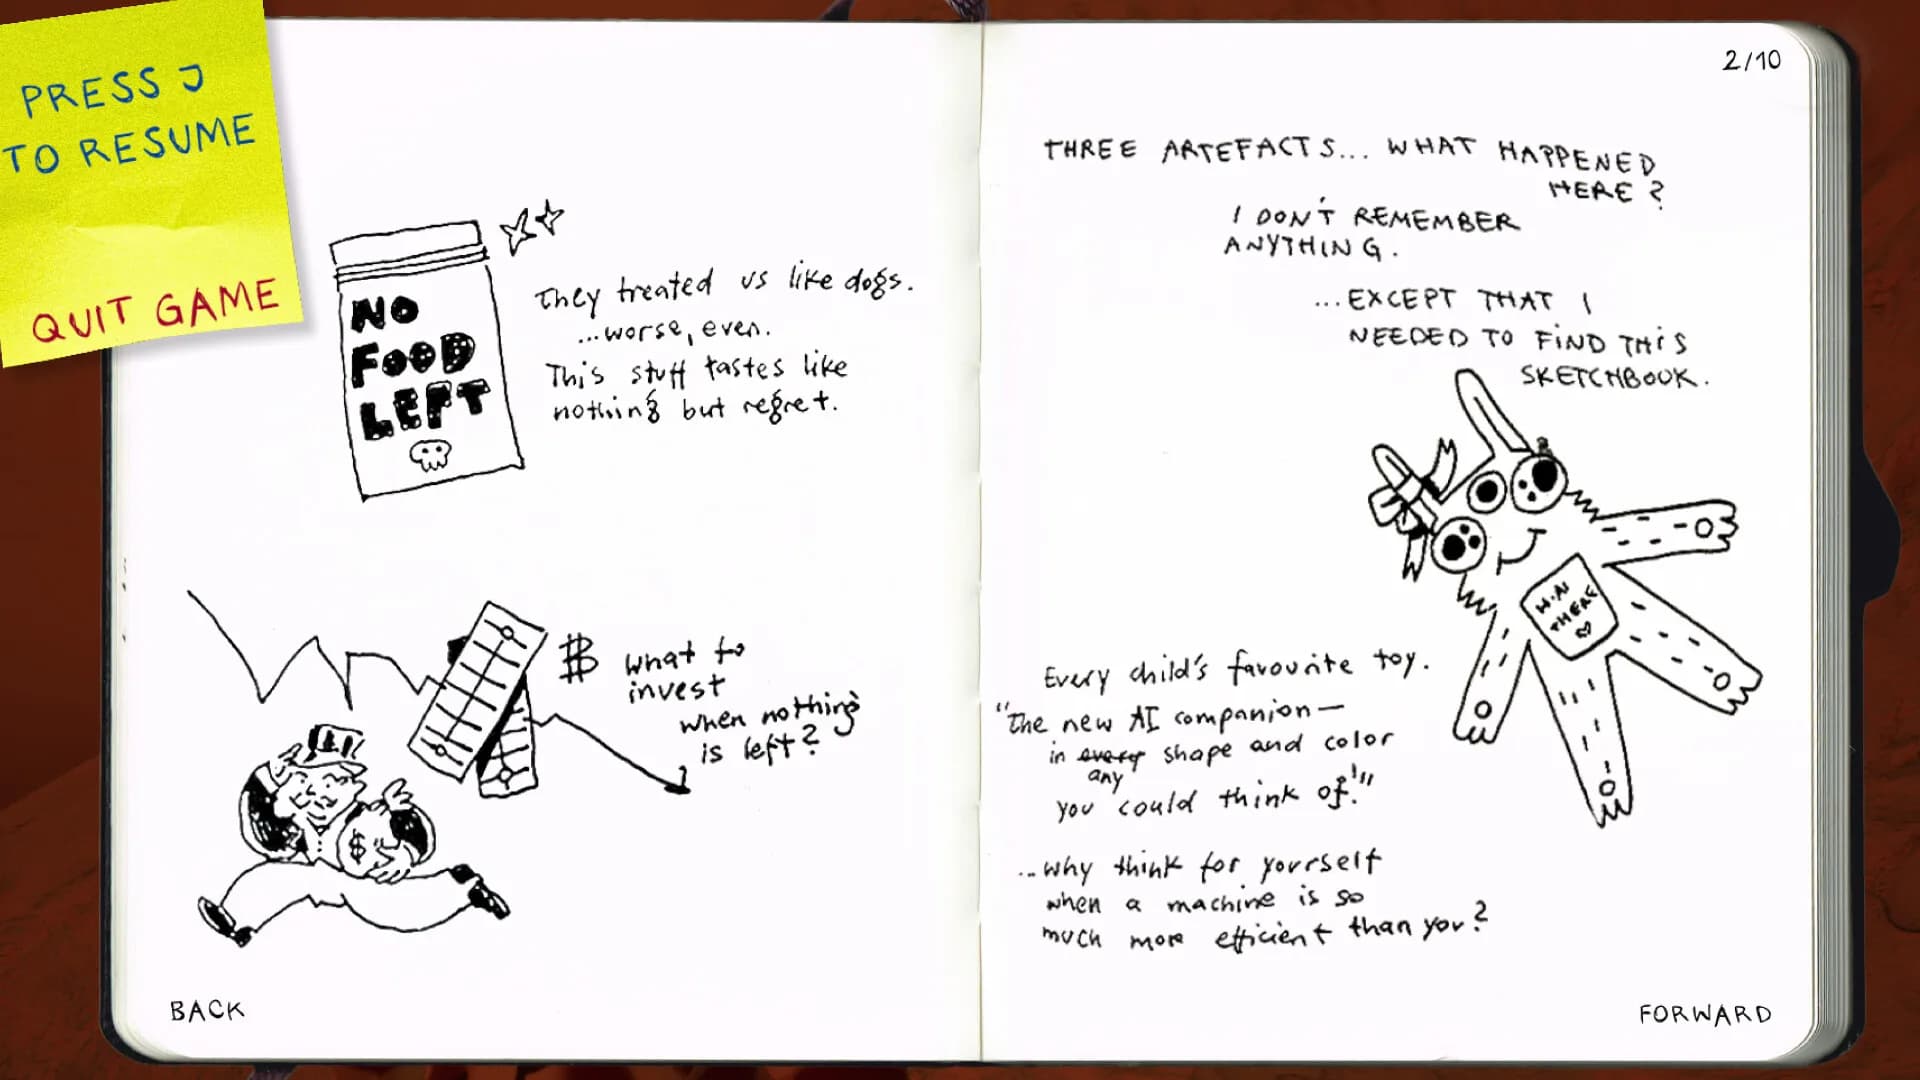 PRESS J
TO RESUME
QUIT GAME
NO
FOOD
LEFT
They treated us like dogs.
...worse, even.
This stuff tastes like
nothing but regret.
what to
invest
when nothing
is left?
$
BACK
2/10
THREE ARTEFACTS... WHAT HAPPENED
HERE?
I DON'T REMEMBER
ANYTHING.
...EXCEPT THAT I
NEEDED TO FIND THIS
SKETCHBOOK.
THERE
Every child's favourite toy.
"The new AI companion—
in every shape and color
any
you could think of!"
...why think for yourself
when a machine is so
much more efficient than you?
FORWARD